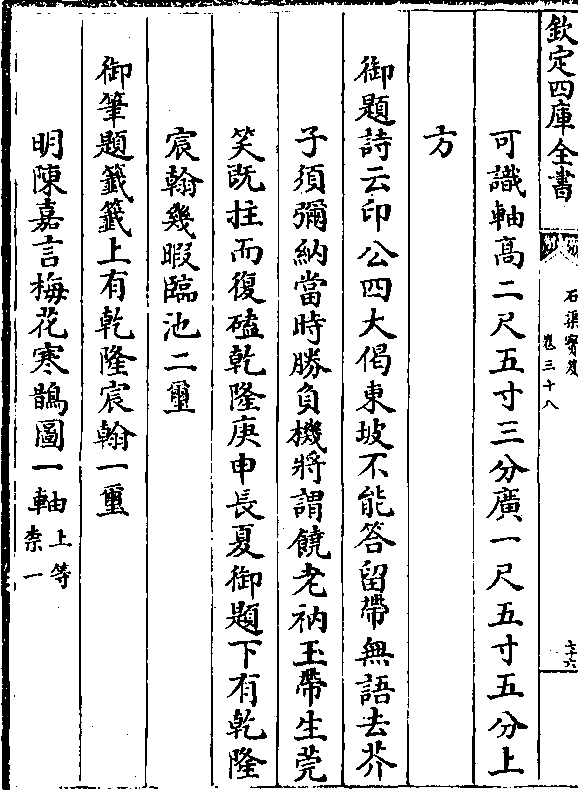 欽定四庫全書
石渠寶笈
卷三十八
可識軸髙二尺五寸三分廣一尺五寸五分上
方
御題詩云印公四大偈東坡不能答留帶無語去芥
子須彌納當時勝負機將謂饒老衲玉帶生莞
笑既拄而復磕乾隆庚申長夏御題下有乾隆
宸翰幾暇臨池二璽
御筆題籤籤上有乾隆宸翰一璽
明陳嘉言梅花寒鵲圖一軸上等
柰一